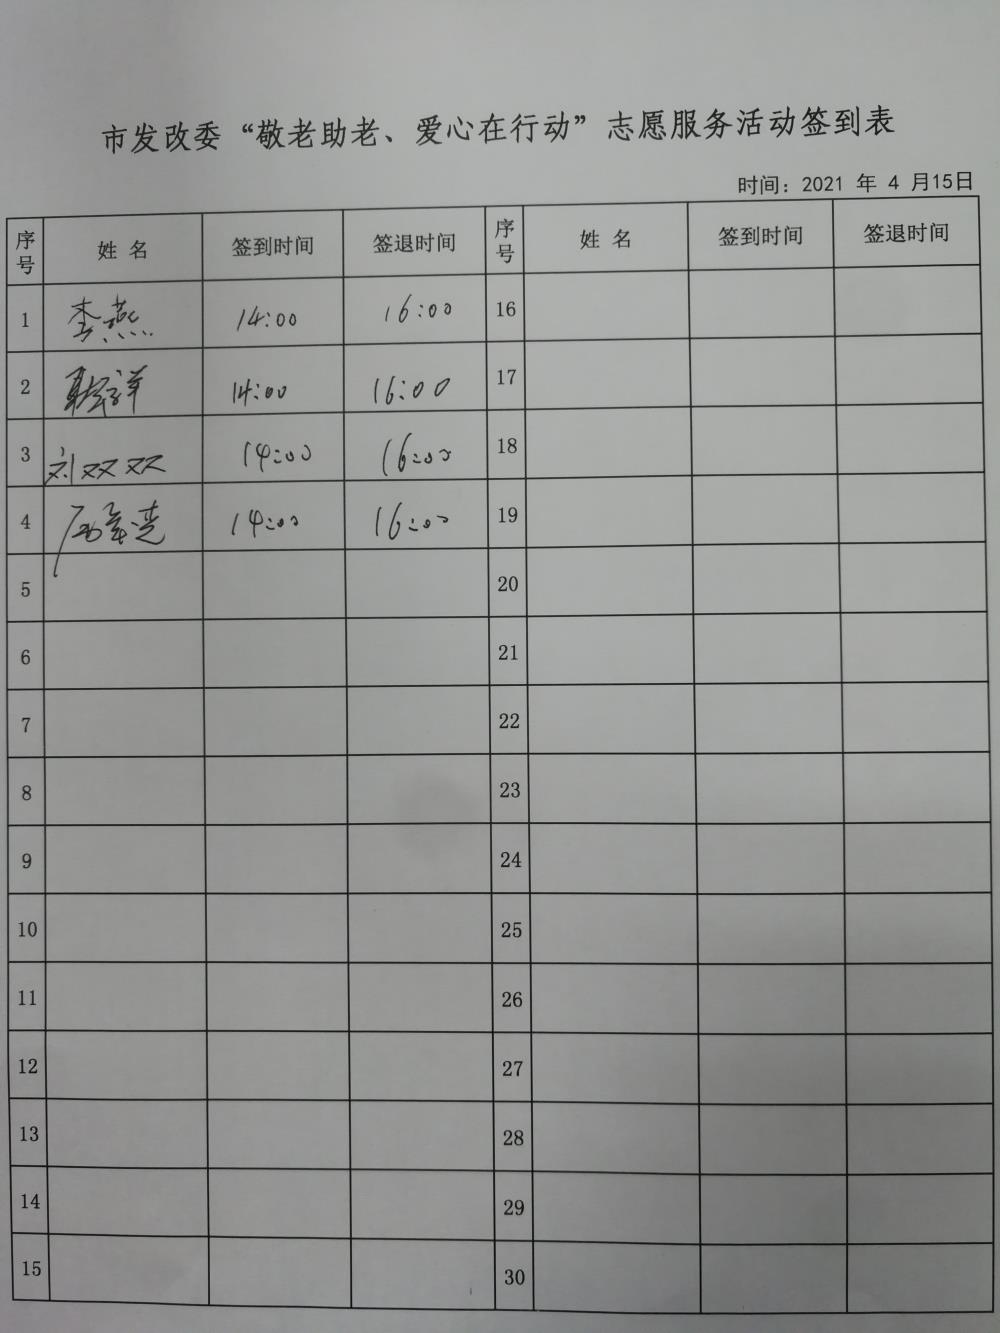 市发改委“敬老助老、爱心在行动”志愿服务活动签到表
时间：2021 年 4 月15日
序号 姓 名 签到时间 签退时间 序号 姓 名 签到时间 签退时间
1 李燕 14:00 16:00 16
2 14:00 16:00 17
3 刘双双 14:00 16:00 18
4 14:00 16:00 19
5 20
6 21
7 22
8 23
9 24
10 25
11 26
12 27
13 28
14 29
15 30